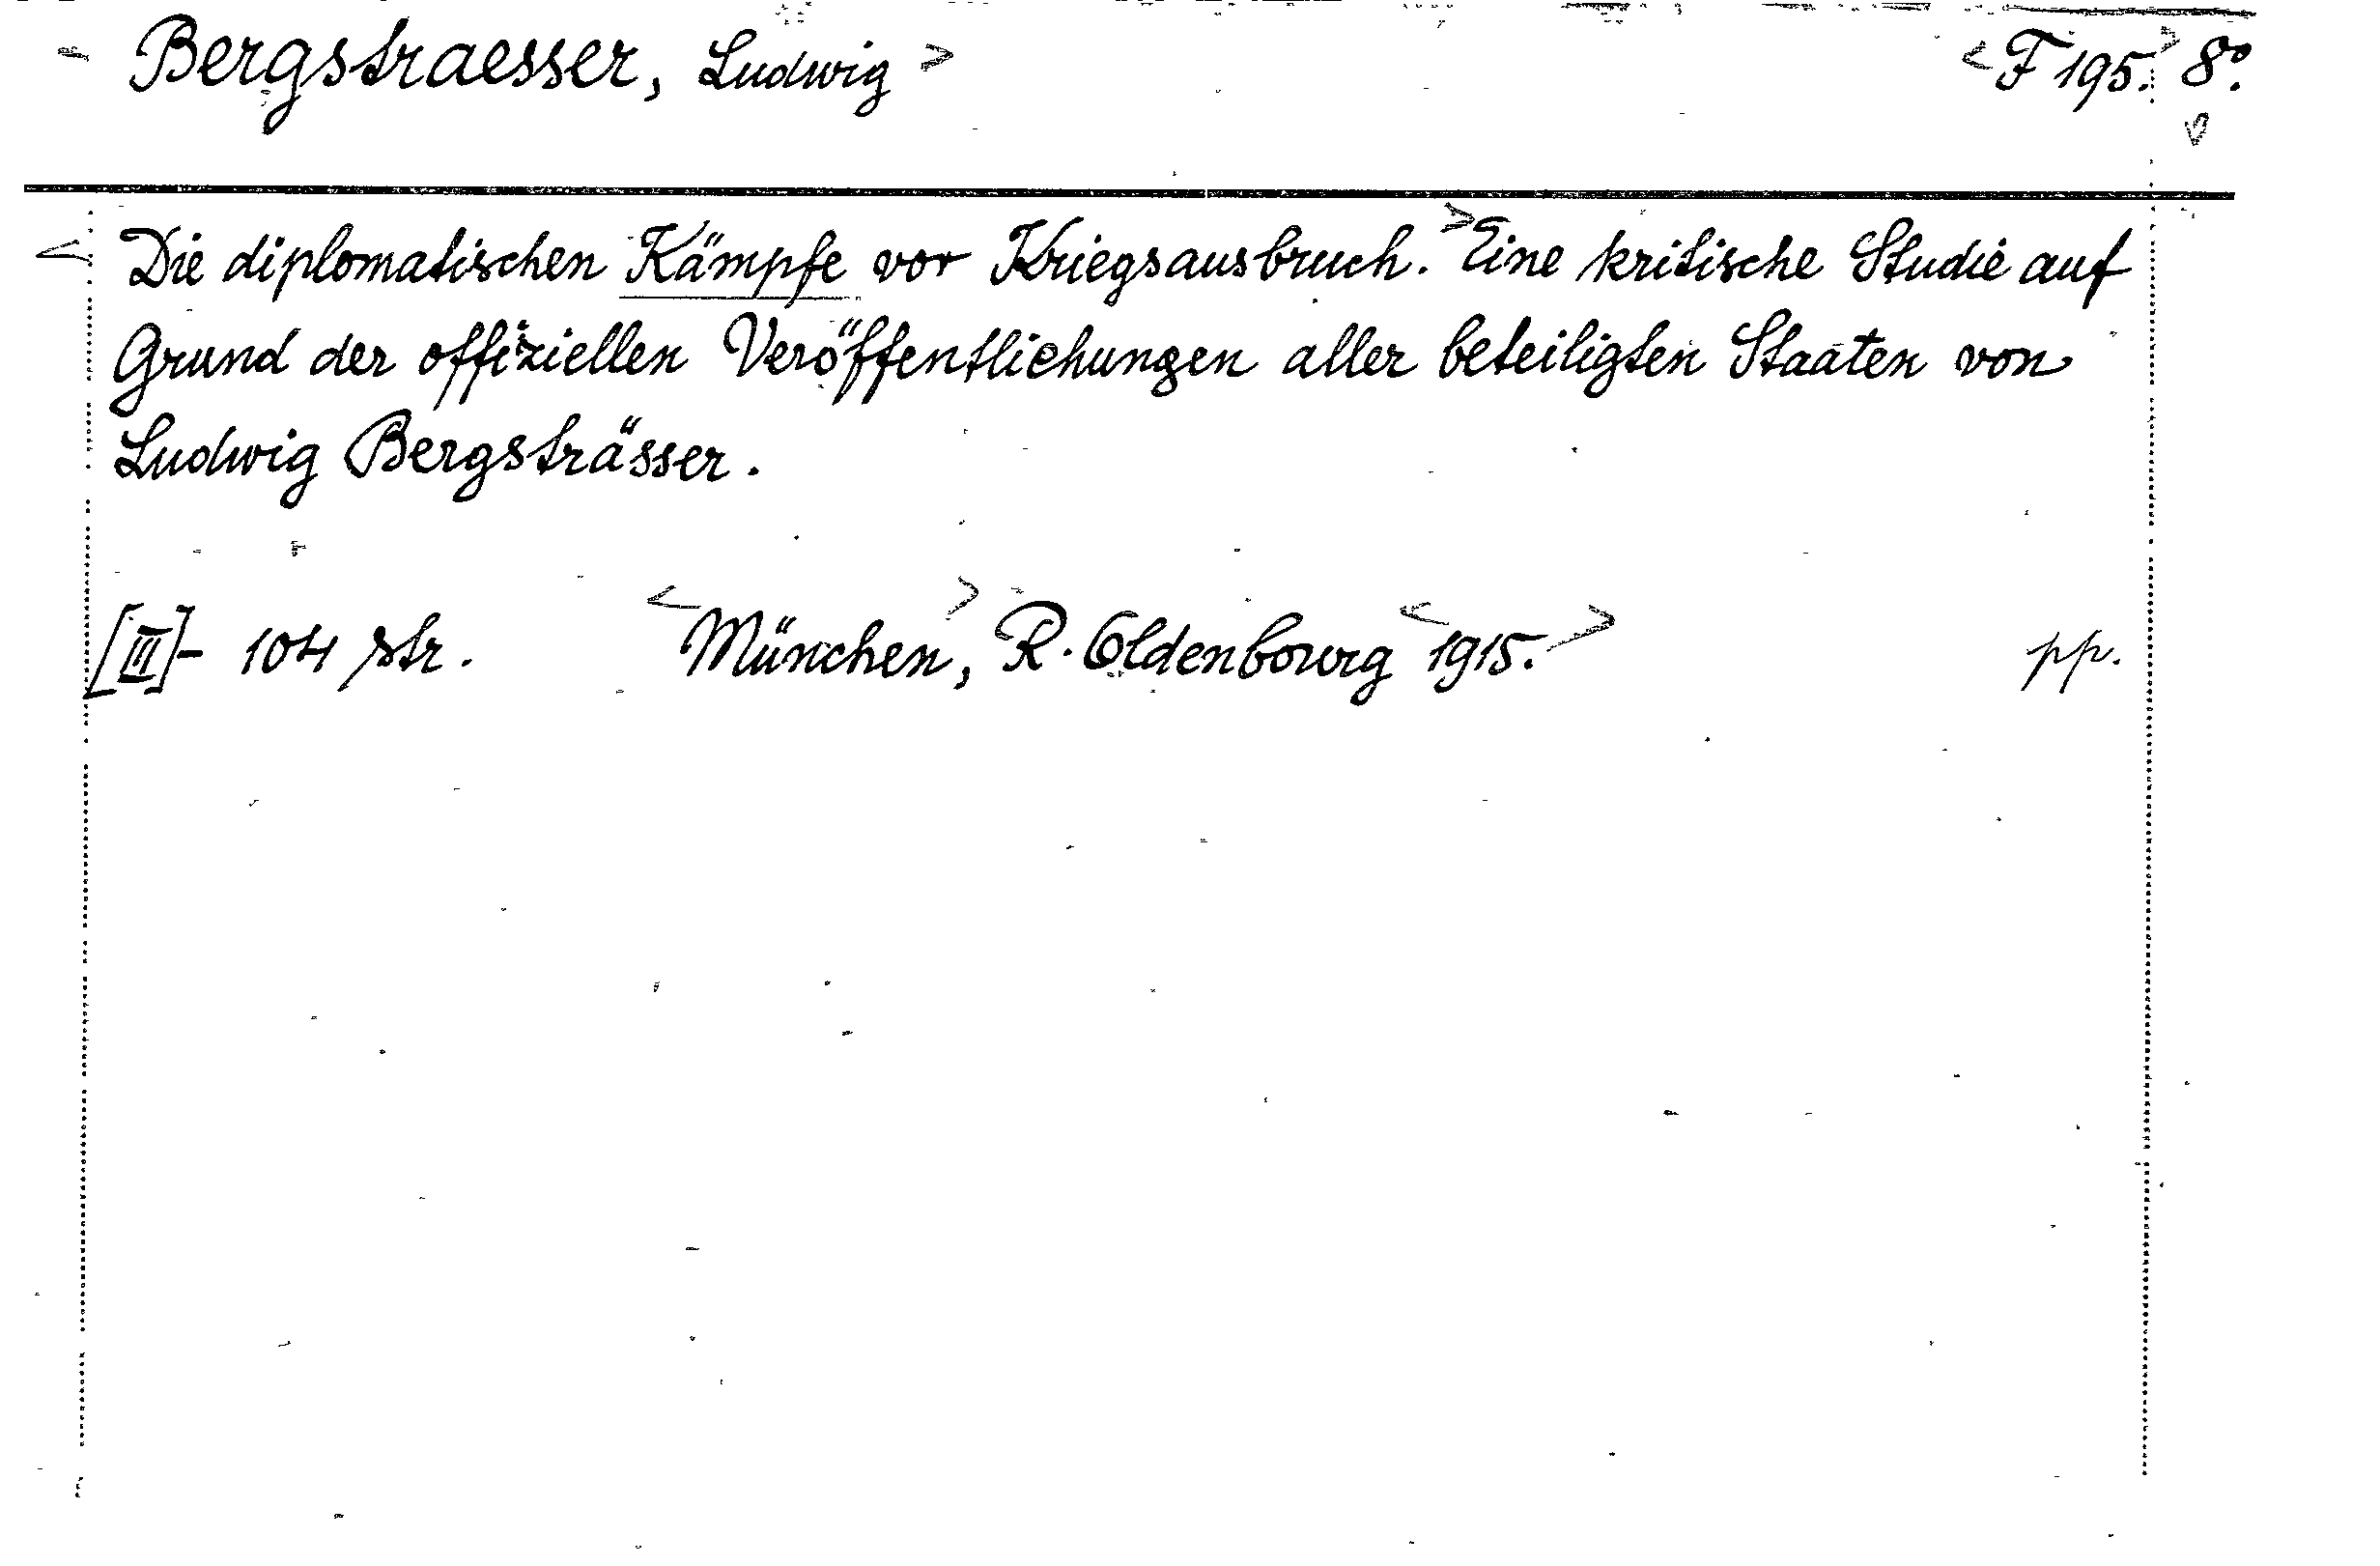 Bergstraesser, Ludwig F 195. 8°.
Die diplomatischen Kämpfe vor Kriegsausbruch. Eine kritische Studie auf
Grund der offiziellen Veröffentlichungen aller beteiligten Staaten von
Ludwig Bergsträsser.
[III]- 104 str. München, R. Oldenbourg 1915. pp.